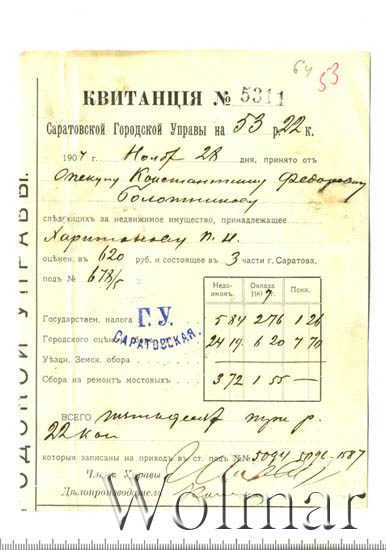 64 53
КВИТАНЦІЯ № 5311
Саратовской Городской Управы на 53 р. 22 к.
1907 г. Нояб 28 дня, принято отъ
Опекуну Константину Федоровичу
Болотникову
слѣдующихъ за недвижимое имущество, принадлежащее
Харитонову П. И.
оцѣнен. въ 620 руб. и состоящее въ 3 части г. Саратова,
подъ № 678/5
Недоимокъ. Оклада 1907 г. Пени.
Государствен. налога 5 84 2 76 1 26
Городского оцѣноч. 24 19 6 20 7 70
Уѣздн. Земск. сбора
Сбора на ремонтъ мостовыхъ 3 72 1 55 —
Г. У.
САРАТОВСКАЯ.
ВСЕГО пятьдесят три р.
22 коп
которыя записаны на приходъ въ ст. подъ №№ 5094 5096-1587
Членъ Управы
Дѣлопроизводитель
ОДСКОЙ УПРАВЫ.
Wolmar